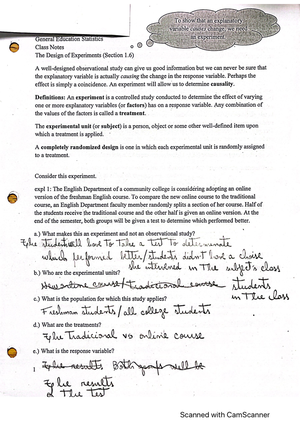 To show that an explanatory
variable causes change, we need
an experiment
General Education Statistics
Class Notes
The Design of Experiments (Section 1.6)
A well-designed observational study can give us good information but we can never be sure that
the explanatory variable is actually causing the change in the response variable. Perhaps the
effect is simply a coincidence. An experiment will allow us to determine causality.
Definitions: An experiment is a controlled study conducted to determine the effect of varying
one or more explanatory variables (or factors) has on a response variable. Any combination of
the values of the factors is called a treatment.
The experimental unit (or subject) is a person, object or some other well-defined item upon
which a treatment is applied.
A completely randomized design is one in which each experimental unit is randomly assigned
to a treatment.
Consider this experiment.
expl 1: The English Department of a community college is considering adopting an online
version of the freshman English course. To compare the new online course to the traditional
course, an English Department faculty member randomly splits a section of her course. Half of
the students receive the traditional course and the other half is given an online version. At the
end of the semester, both groups will be given a test to determine which performed better.
a.) What makes this an experiment and not an observational study?
The students will have to take a test to determinate
which performed better/students didn't have a choise
she intervined in the subject's class
b.) Who are the experimental units?
New online course/traditional course students
in the class
c.) What is the population for which this study applies?
Freshman students/all college students
d.) What are the treatments?
The Tradicional vs online course
e.) What is the response variable?
1
The results Both groups will be
The results
of the test
Scanned with CamScanner